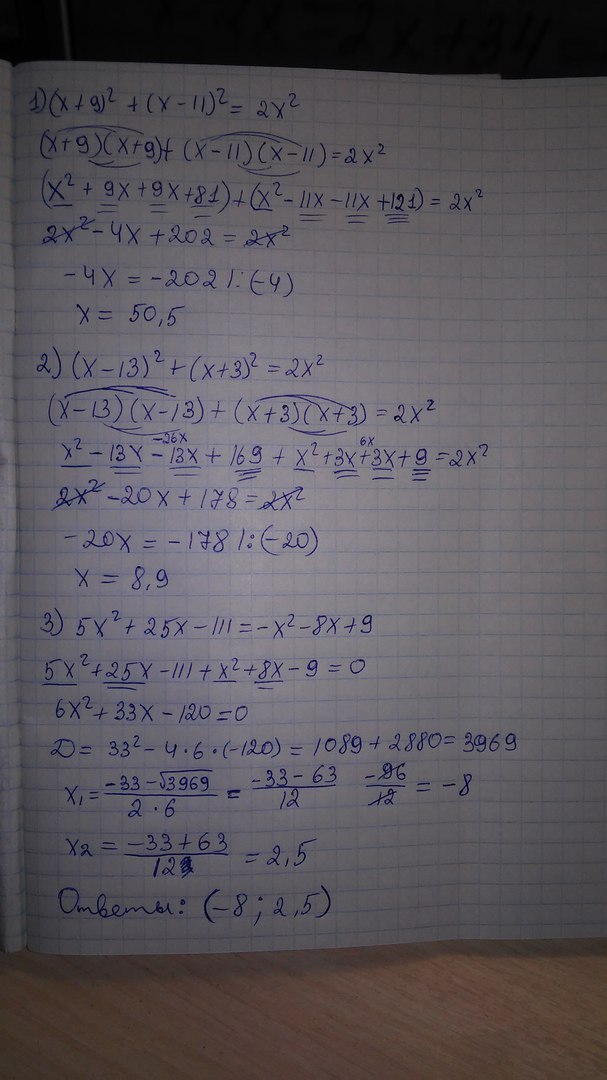 1) (x+9)² + (x-11)² = 2x²
(x+9)(x+9) + (x-11)(x-11) = 2x²
(x² + 9x + 9x + 81) + (x² - 11x - 11x + 121) = 2x²
2x² - 4x + 202 = 2x²
-4x = -202 |:(-4)
x = 50,5
2) (x-13)² + (x+3)² = 2x²
(x-13)(x-13) + (x+3)(x+3) = 2x²
-26x 6x
x² - 13x - 13x + 169 + x² + 3x + 3x + 9 = 2x²
2x² - 20x + 178 = 2x²
-20x = -178 |:(-20)
x = 8,9
3) 5x² + 25x - 111 = -x² - 8x + 9
5x² + 25x - 111 + x² + 8x - 9 = 0
6x² + 33x - 120 = 0
D = 33² - 4·6·(-120) = 1089 + 2880 = 3969
x₁ = (-33-√3969)/(2·6) = (-33-63)/12 -96/12 = -8
x₂ = (-33+63)/12 = 2,5
Ответы: (-8; 2,5)